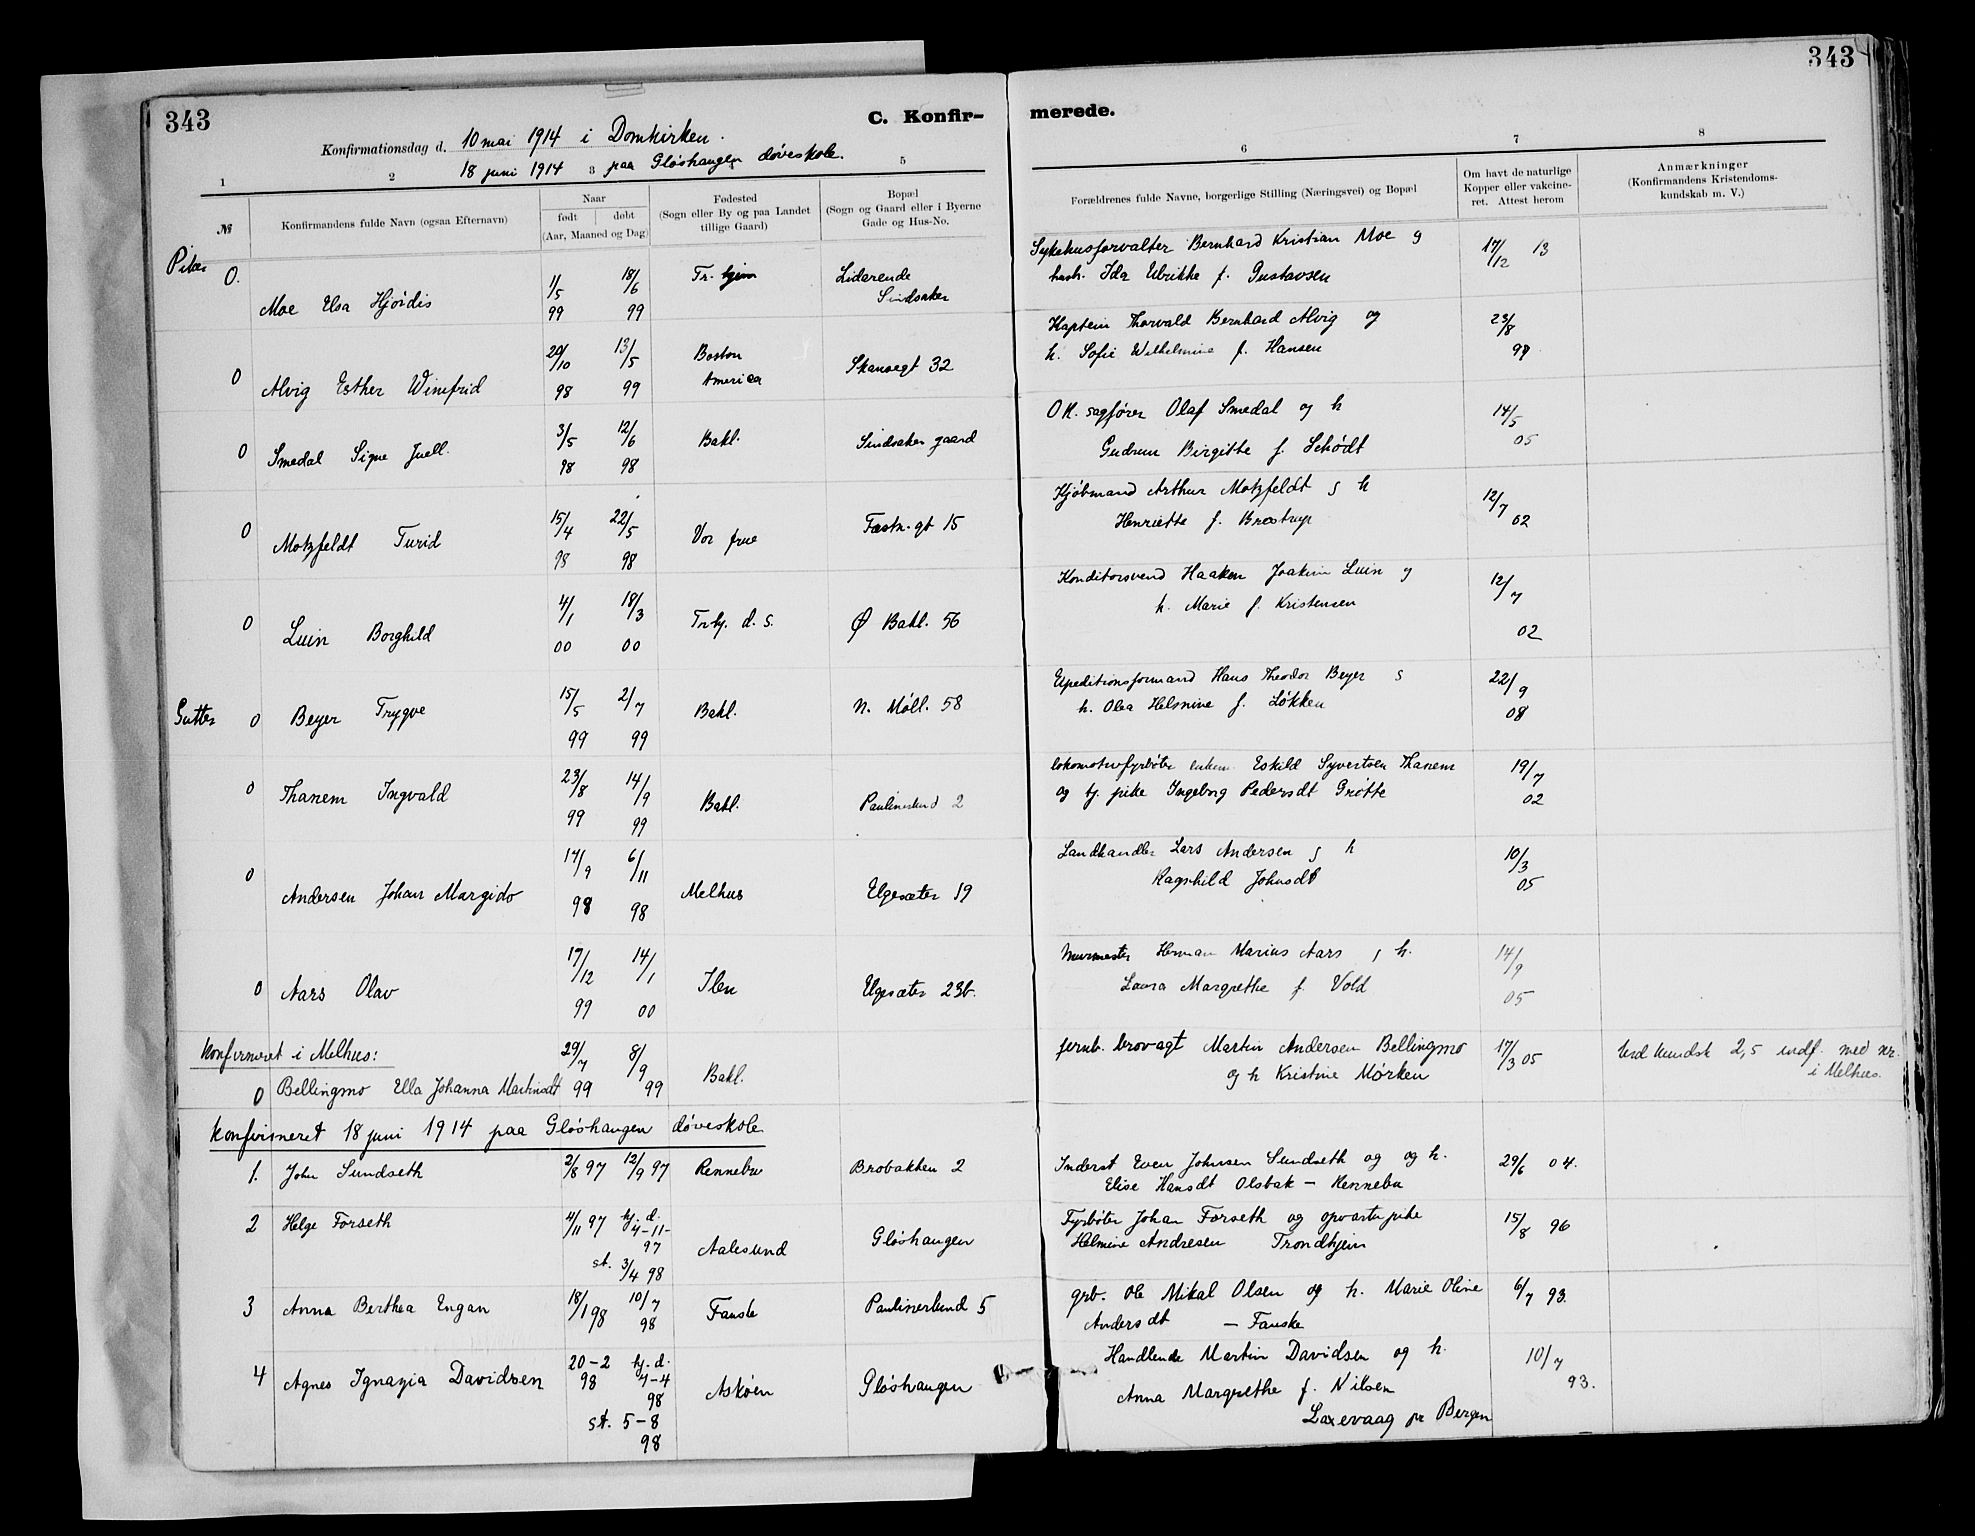 343
C. Konfir-
merede.
343
Konfirmationsdag d. 10 mai 1914 i Domkirken.
18 juni 1914 paa Gløshaugen døveskole.
1 2 3 5 6 7 8
№
Konfirmandens fulde Navn (ogsaa Efternavn)
Naar
født døbt
(Aar, Maaned og Dag)
Fødested
(Sogn eller By og paa Landet
tillige Gaard)
Bopæl
(Sogn og Gaard eller i Byerne
Gade og Hus-No.
Forældrenes fulde Navne, borgerlige Stilling (Næringsvei) og Bopæl
Om havt de naturlige
Kopper eller vakcine-
ret. Attest herom
Anmærkninger
(Konfirmandens Kristendoms-
kundskab m. V.)
Piker
0. Moe Elsa Hjørdis 1/5 99 18/6 99 Tr. hjem Sindsaker
Sykehusforvalter Bernhard Kristian Moe og
hush. Ida Ulrikke f. Gustavsen
17/12 13
0 Alvig Esther Winifrid 20/10 98 13/5 99 Boston America Skansegt 32
Kaptein Thorvald Bernhard Alvig og
h. Sofie Wilhelmine f. Hansen
23/8 99
0 Smedal Signe Juell. 3/5 98 12/6 98 Bakl. Sindsaker gaard
OR. sagfører Olaf Smedal og h
Gudrun Birgitte f. Schødt
14/5 05
0 Motzfeldt Turid 15/4 98 22/5 98 Vor frue Fæstn. gt 15
Kjøbmand Arthur Motzfeldt g h
Henriette f. Brostrup
12/7 02
0 Luin Borghild 4/1 00 18/3 00 Trhj. d. s. Ø Bakl. 56
Konditorsvend Haaken Joakim Luin g
h. Marie f. Kristensen
12/7 02
Gutter
0 Beyer Trygve 15/5 99 2/7 99 Bakl. N. Møll. 58
Expeditionsformand Hans Theodor Beyer g
h. Olea Helmine f. Løkken
22/9 08
0 Thanem Ingvald 23/8 99 14/9 99 Bakl. Paulinelund 2
lokomotivfyrbøter enkem. Eskild Syvertsen Thanem
og tj. pike Ingeborg Pedersdt Grøtte
19/7 02
0 Andersen Johan Margido 17/9 98 6/11 98 Melhus Elgesæter 19
Landhandler Lars Andersen g h
Ragnhild Johnsdt
10/3 05
0 Aars Olav 17/12 99 14/1 00 Ilen Elgesæter 23b.
Murmester Herman Marius Aars g h.
Laura Margrethe f. Vold
14/9 05
Konfirmeret i Melhus:
0 Bellingmo Ella Johanna Martinsdt 29/7 99 8/9 99 Bakl.
jernb. brovagt Martin Andersen Bellingmo
og h Kristine Mørken
17/3 05
kundsk 2,5 indf. med nr.
i Melhus.
Konfirmeret 18 juni 1914 paa Gløshaugen døveskole
1. John Sundseth 2/8 97 12/9 97 Rennebu Brobakken 2
Inderst Even Johnsen Sundseth og og h.
Elise Hansdt Olsbak — Rennebu
29/6 04.
2 Helge Forseth 4/11 97 hj. d. 4-11-97
st. 3/4 98 Aalesund Gløshaugen
Fyrbøter Johan Forseth og opvartn pike
Helmine Andresen Trondhjem
15/8 96
3 Anna Berthea Engan 18/1 98 10/7 98 Fauske Paulinerlund 5
grb. Ole Mikal Olsen og h. Marie Oline
Andersdt — Fauske
6/7 93.
4 Agnes Ignazia Davidsen 20-2 98 hj. d. 4-4 98
st. 5-8 98 Askøen Gløshaugen
Handlende Martin Davidsen og h.
Anna Margrethe f. Nilsen
Laxevaag pr Bergen
10/7 93.